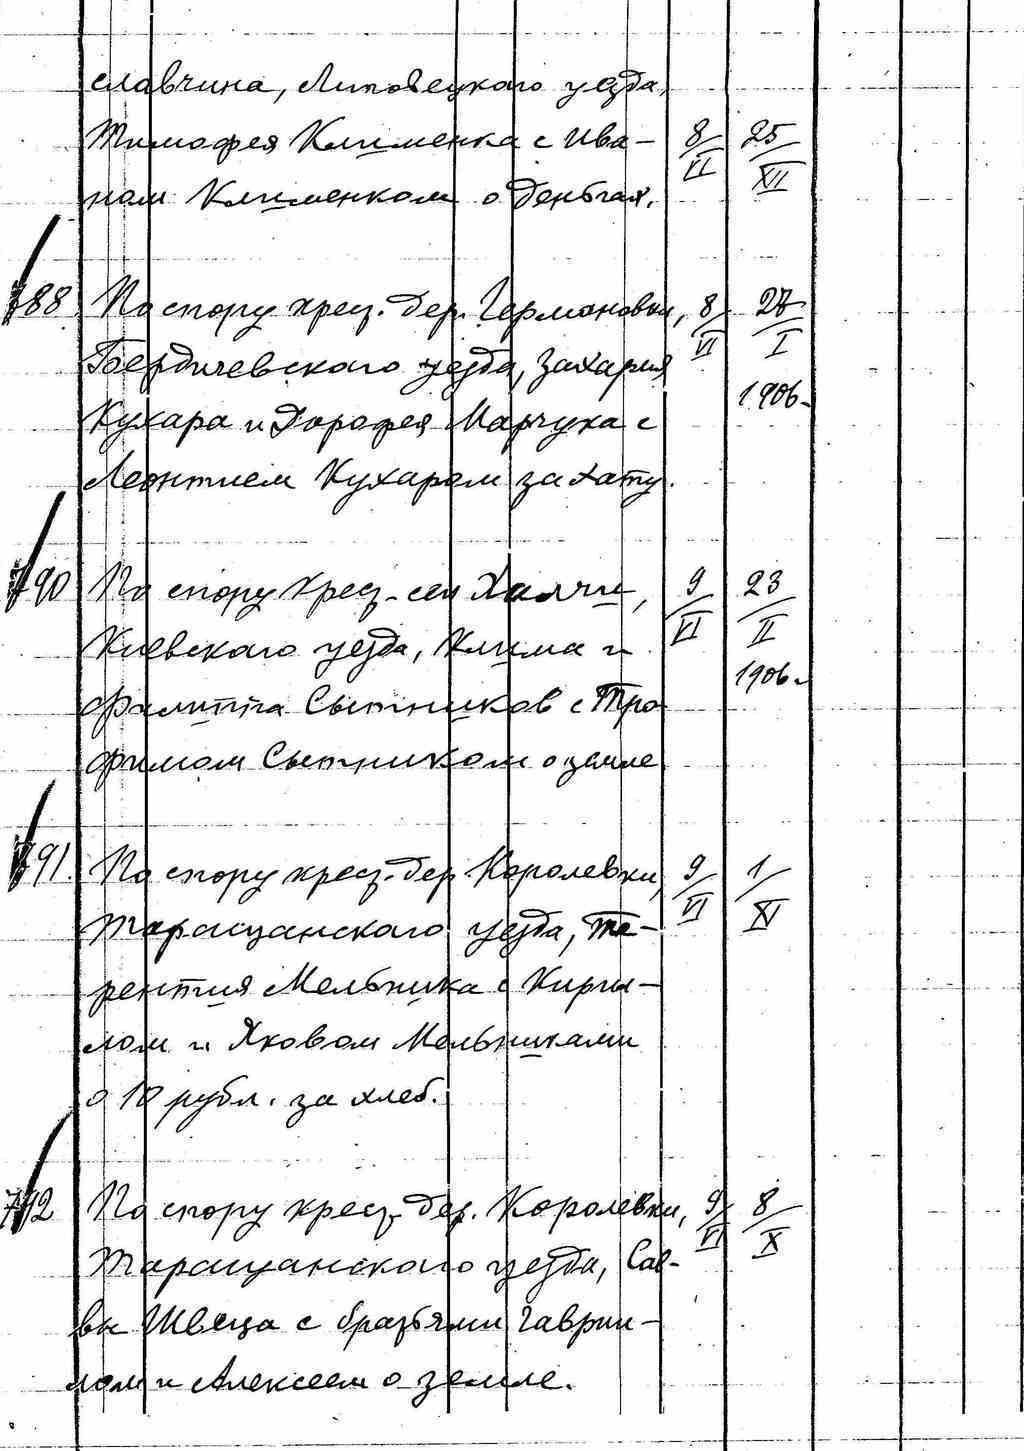 славчина, Липовецкого уезда,
Тимофея Клименка с Ива- 8/VI 25/XII
ном Клименком о деньгах.
788 По спору крест. дер. Германовки, 8/VI 27/I
Бердичевского уезда, Захария
1906.
Кухара и Дорофея Марчука с
Леонтием Кухаром за хату.
790 По спору крест. сел Халчи, 9/VI 23/II
Киевского уезда, Клима и
1906.
Филиппа Сытников с Тро-
фимом Сытником о земле.
791. По спору крест. дер. Королевки, 9/VI 1/XI
Таращанского уезда, Те-
рентия Мельника с Кири-
лом и Яковом Мельниками
о 10 рубл. за хлеб.
792 По спору крест. дер. Королевки, 9/VI 8/X
Таращанского уезда, Сав-
вы Швеца с братьями Гаври-
лом и Алексеем о земле.